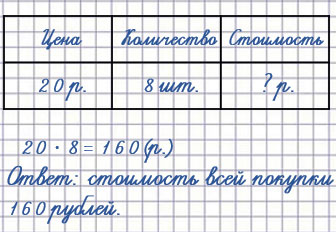 Цена Количество Стоимость
20 р. 8 шт. ? р.
20 · 8 = 160 (р.)
Ответ: стоимость всей покупки
160 рублей.